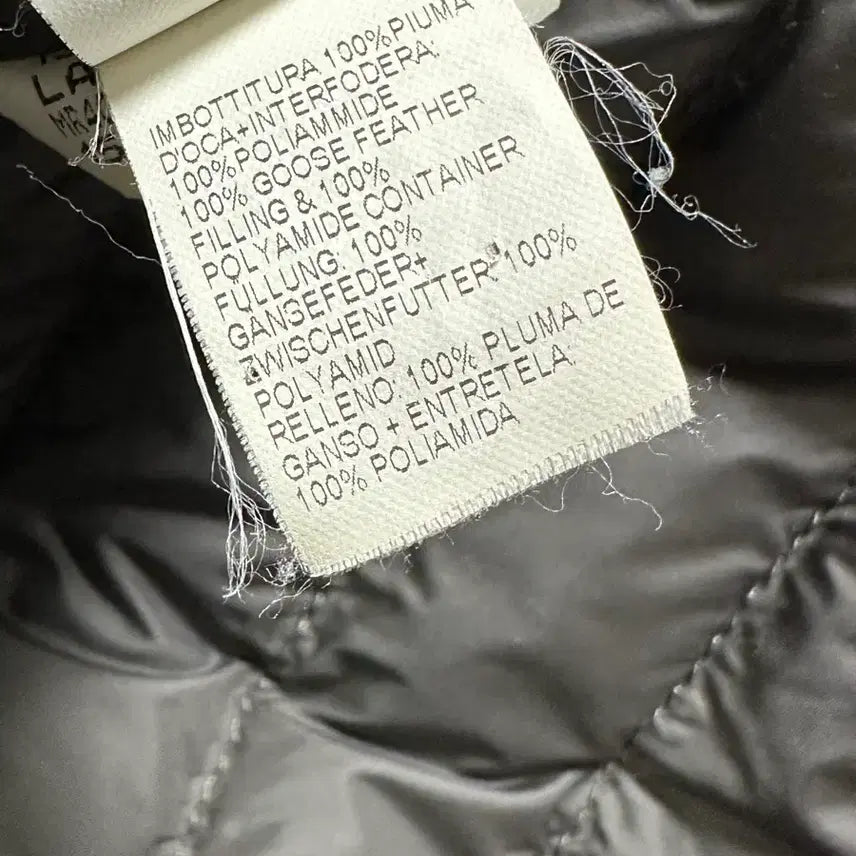 LA
IMBOTTITURA 100%PIUMA
D'OCA+INTERFODERA:
100%POLIAMMIDE
100% GOOSE FEATHER
FILLING & 100%
POLYAMIDE CONTAINER
FÜLLUNG: 100%
GÄNSEFEDER+
ZWISCHENFUTTER: 100%
POLYAMID
RELLENO: 100% PLUMA DE
GANSO + ENTRETELA:
100% POLIAMIDA